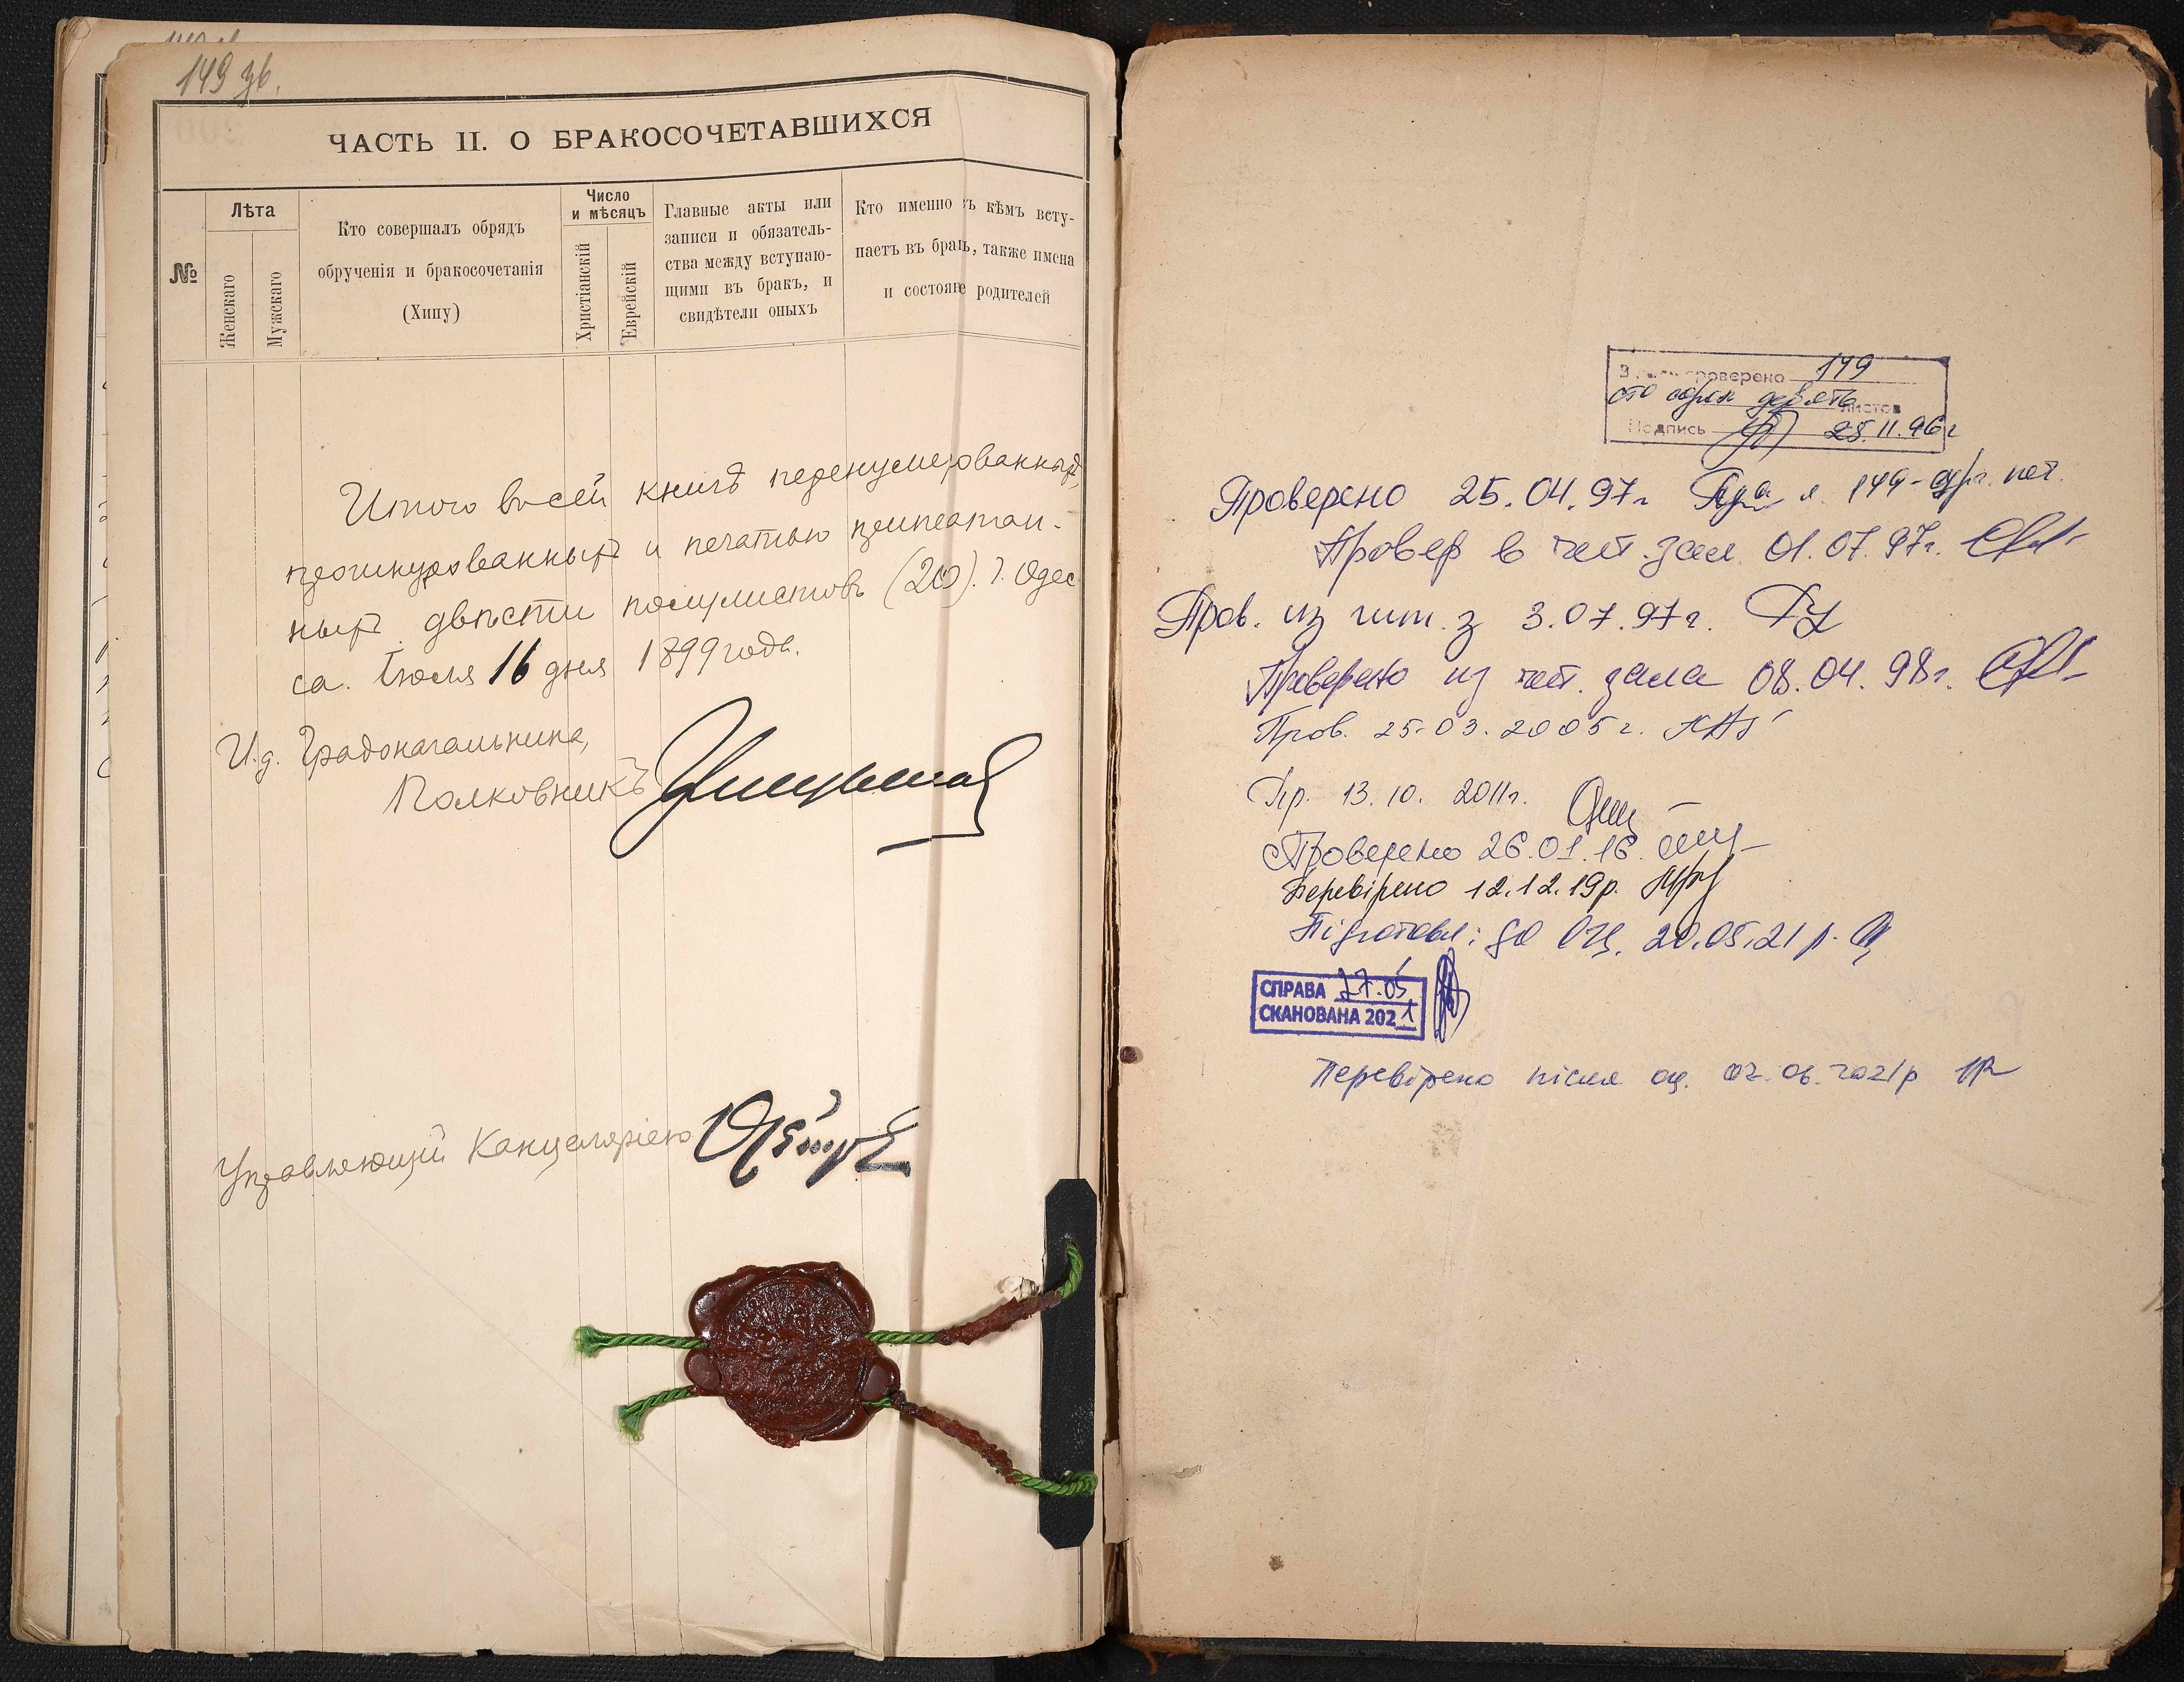 149 зв.
ЧАСТЬ II. О БРАКОСОЧЕТАВШИХСЯ
№
Лѣта
Женскаго
Мужскаго
Кто совершалъ обрядъ
обрученія и бракосочетанія
(Хипу)
Число
и мѣсяцъ
Христіанскій
Еврейскій
Главные акты или
записи и обязатель-
ства между вступаю-
щими въ бракъ, и
свидѣтели оныхъ
Кто именно съ кѣмъ всту-
паетъ въ бракъ, также имена
и состояніе родителей
Итого въ сей книгѣ перенумерованныхъ,
прошнурованныхъ и печатью припечатан-
ныхъ двѣсти полулистовъ (200). г. Одес
са. Іюля 16 дня 1899 года.
И. д. Градоначальника,
Полковникъ
Управляющій Канцеляріею
В проверено 149
сто сорок девять листов
Подпись 25.11.96г
Проверено 25.04.97г л. 149 - нет.
Провер в чит. зал 01.07.97г.
Пров. из чит. з 3.07.97г.
Проверено из чит. зала 08.04.98г.
Пров. 25-03.2005г.
Пр. 13.10.2011г.
Проверено 26.01.16.
Перевірено 12.12.19р.
Підготовл: до ОЦ. 20.05.21р.
СПРАВА 27.05
СКАНОВАНА 2021
Перевірено після оц. 02.06.2021р